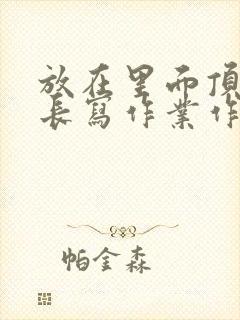 放在里而頂
長寫作業作
帕金森